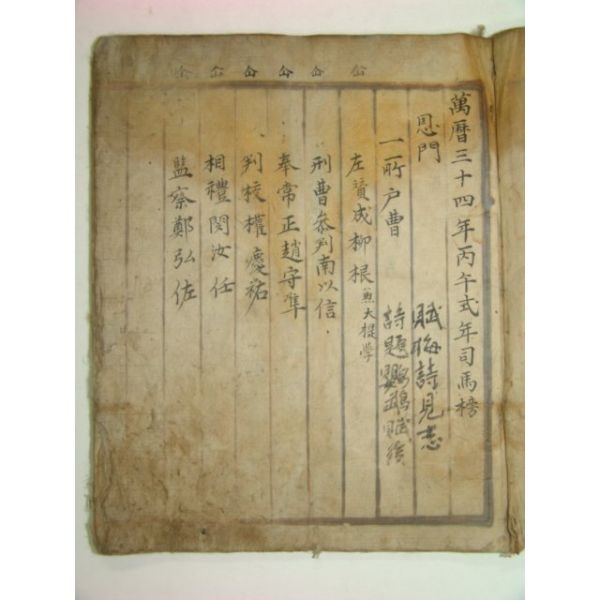 萬曆三十四年丙午式年司馬榜
恩門 賦梅詩見志
二所户曹 詩題鸚鵡賦後
左贊成柳根 兼大提學
刑曹參判南以信
奉常正趙守準
判校權慶祐
相禮閔汝任
監察鄭弘佐